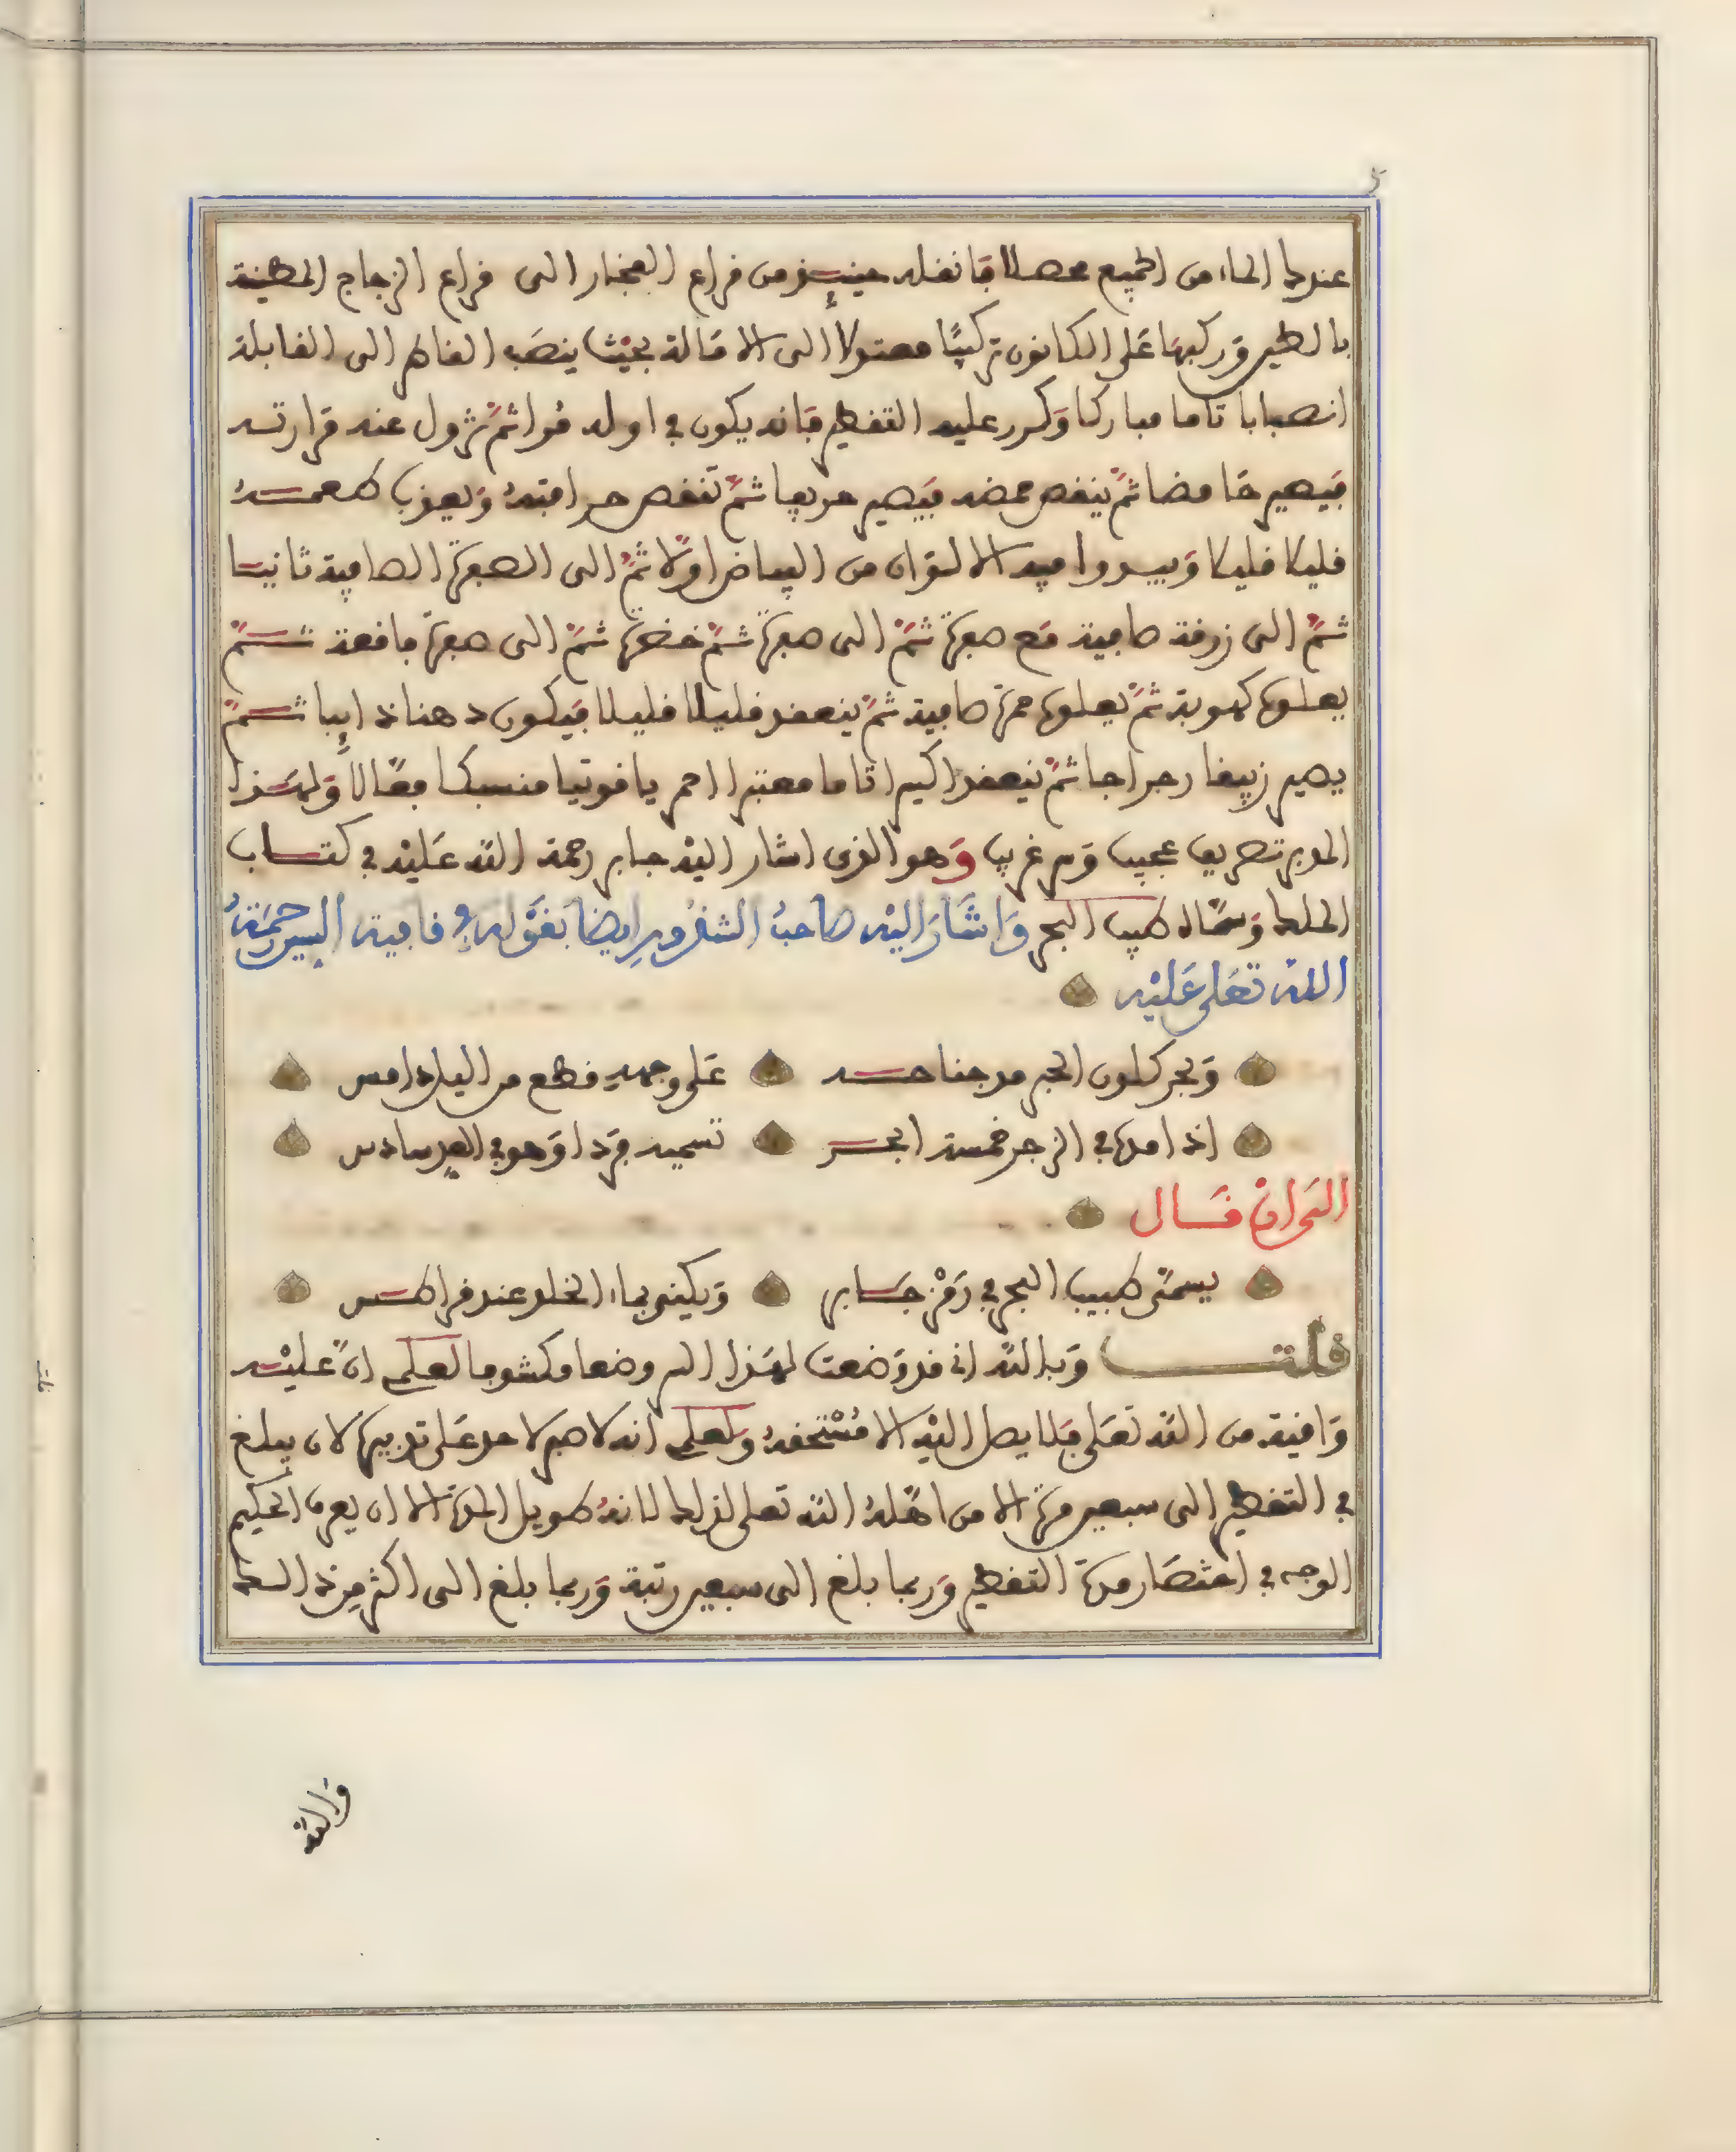 عندك الماء من الجميع محصلا فانقله حينئذ من قراع الفخار الى قراع الزجاج المطينة
بالطين وركبها على الكانون تركيبا معتولا الى الامالة بحيث ينصب القاطر الى القابلة
انصبابا تاما مباركا وكرر عليه التقطير فانه يكون في اوله مرا ثم تزول عنه مرارته
فيصير حامضا ثم ينقص حمضه فيصير حريفا ثم تنقص حرافته ويعذب طعمه
قليلا قليلا ويبدوا فيه الالوان من البياض اولا ثم الى الصفرة الصافية ثانيا
ثم الى زرقة صافية مع صفرة ثم الى صفرة ثم خضرة ثم الى صفرة فاقعة ثم
يعلوها كهوبة ثم يعلوها حمرة صافية ثم ينعقد قليلا قليلا فيكون دهنا ذايبا ثم
يصير زيبقا رجراجا ثم ينعقد اكسيرا تاما معتبرا احمر ياقوتيا منسبكا فعالا ولهذا
المدبر تصريف عجيب وسر غريب وهو الذي اشار اليه جابر رحمة الله عليه في كتاب
الملك وسماه طبيب البحر واشار اليه صاحب الشذور ايضا بقوله في قافية السين رحمة
الله تعلى عليه
وبحر كلون الحبر مدجنا حسه على وجهه قطع من اليل دامس
اذا امدها في الزجر خمسة ابحر تسميه فردا وهو في العد سادس
الى ان قال
يسمى طبيب البحر في رمز جابر ويكنى بماء الخلد عند قراطس
قلت وبالله اني قد وضعت لهذا السر وضعا مكشوفا لعلمي ان عليه
واقية من الله تعلى فلا يصل اليه الا مستحقه ولعلمي انه لا صبر لاحد على تدبيره لان يبلغ
في التقطير الى سبعين مرة الا من اهله الله تعلى لذلك لانه طويل المدة الا ان يعرف الحكيم
الوجه في اختصار مدة التقطير وربما بلغ الى سبعين رتبة وربما بلغ الى اكثر من ذلك
والله